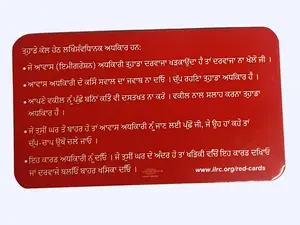 ਤੁਹਾਡੇ ਕੋਲ ਹੇਠ ਲਖਿਿਸੰਵਧਿਾਨਕ ਅਧਕਿਾਰ ਹਨ:
• ਜੇ ਆਵਾਸ (ਇਮੀਗਰੇਸ਼ਨ) ਅਧਕਿਾਰੀ ਤੁਹਾਡਾ ਦਰਵਾਜਾ ਖੜਕਾਉਂਦਾ ਹੈ ਤਾਂ ਦਰਵਾਜਾ ਨਾ ਖੋਲੋ ਜੀ ।
• ਆਵਾਸ ਅਧਕਿਾਰੀ ਦੇ ਕਸਿੇ ਸਵਾਲ ਦਾ ਜਵਾਬ ਨਾ ਦਓਿ । ਚੁੱਪ ਰਹਣਿਾ ਤੁਹਾਡਾ ਅਧਕਿਾਰ ਹੈ ।
• ਆਪਣੇ ਵਕੀਲ ਨੂੰ ਪੁੱਛੇ ਬਨਿਾਂ ਕਤਿੇ ਵੀ ਦਸਤਖਤ ਨਾ ਕਰੋ । ਵਕੀਲ ਨਾਲ ਸਲਾਹ ਕਰਨਾ ਤੁਹਾਡਾ
ਅਧਕਿਾਰ ਹੈ ।
• ਜੇ ਤੁਸੀਂ ਘਰ ਤੋਂ ਬਾਹਰ ਹੋ ਤਾਂ ਆਵਾਸ ਅਧਕਿਾਰੀ ਨੂੰ ਜਾਣ ਲਈ ਪੁੱਛੋ ਜੀ, ਜੇ ਉਹ ਹਾਂ ਕਹੇ ਤਾਂ
ਚੁੱਪ-ਚਾਪ ਉਥੋਂ ਚਲੇ ਜਾਓ ।
• ਇਹ ਕਾਰਡ ਅਧਕਿਾਰੀ ਨੂੰ ਦਓਿ । ਜੇ ਤੁਸੀਂ ਘਰ ਦੇ ਅੰਦਰ ਹੋ ਤਾਂ ਖੜਿਕੀ ਵਚਿੋਂ ਇਹ ਕਾਰਡ ਦਖਿਾਓ
ਜਾਂ ਦਰਵਾਜੇ ਥਲਓਿਂ ਬਾਹਰ ਖਸਕਿਾ ਦਓਿ ।
www.ilrc.org/red-cards